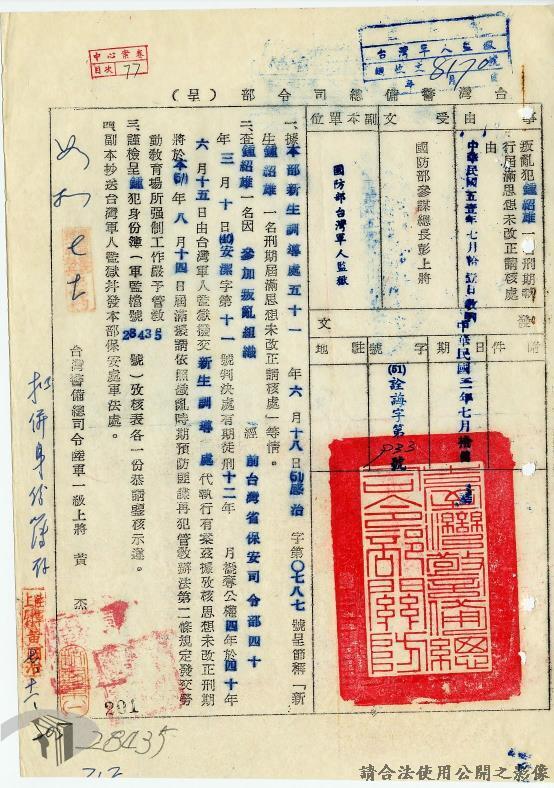 中心案卷
目次 77
台灣軍人監獄
8170
台灣警備總司令部（呈）
事由
叛亂犯鍾紹雄一名刑期屆滿思想未改正請核處由
受文
國防部參謀總長彭上將
副本單位
國防部台灣軍人監獄
發文
日期
中華民國五十一年七月
字號
(51)詮誨字第933號
駐地
附件
一、據本部新生訓導處五十一年六月十八日(51)感治字第〇七八七號呈節稱「新生鍾紹雄一名刑期屆滿思想未改正請核處」等情。
二、查鍾紹雄一名因參加叛亂組織經前台灣省保安司令部四十年三月十日(40)安潔字第十一號判決處有期徒刑十二年月褫奪公權四年於四十年六月十五日由台灣軍人監獄發交新生訓導處代執行有案茲據攷核思想未改正刑期將於本(51)年八月十四日屆滿擬請依照戡亂時期預防匪諜再犯管教辦法第二條規定發交勞動教育場所强制工作嚴予管教
三、謹檢呈鍾犯身份簿（軍監檔號28435號）攷核表各一份恭請鑒核示遵。
四、副本抄送台灣軍人監獄并發本部保安處軍法處。
台灣警備總司令陸軍一級上將黃杰
台灣警備總司令部關防
291
28435
212
請合法使用公開之影像